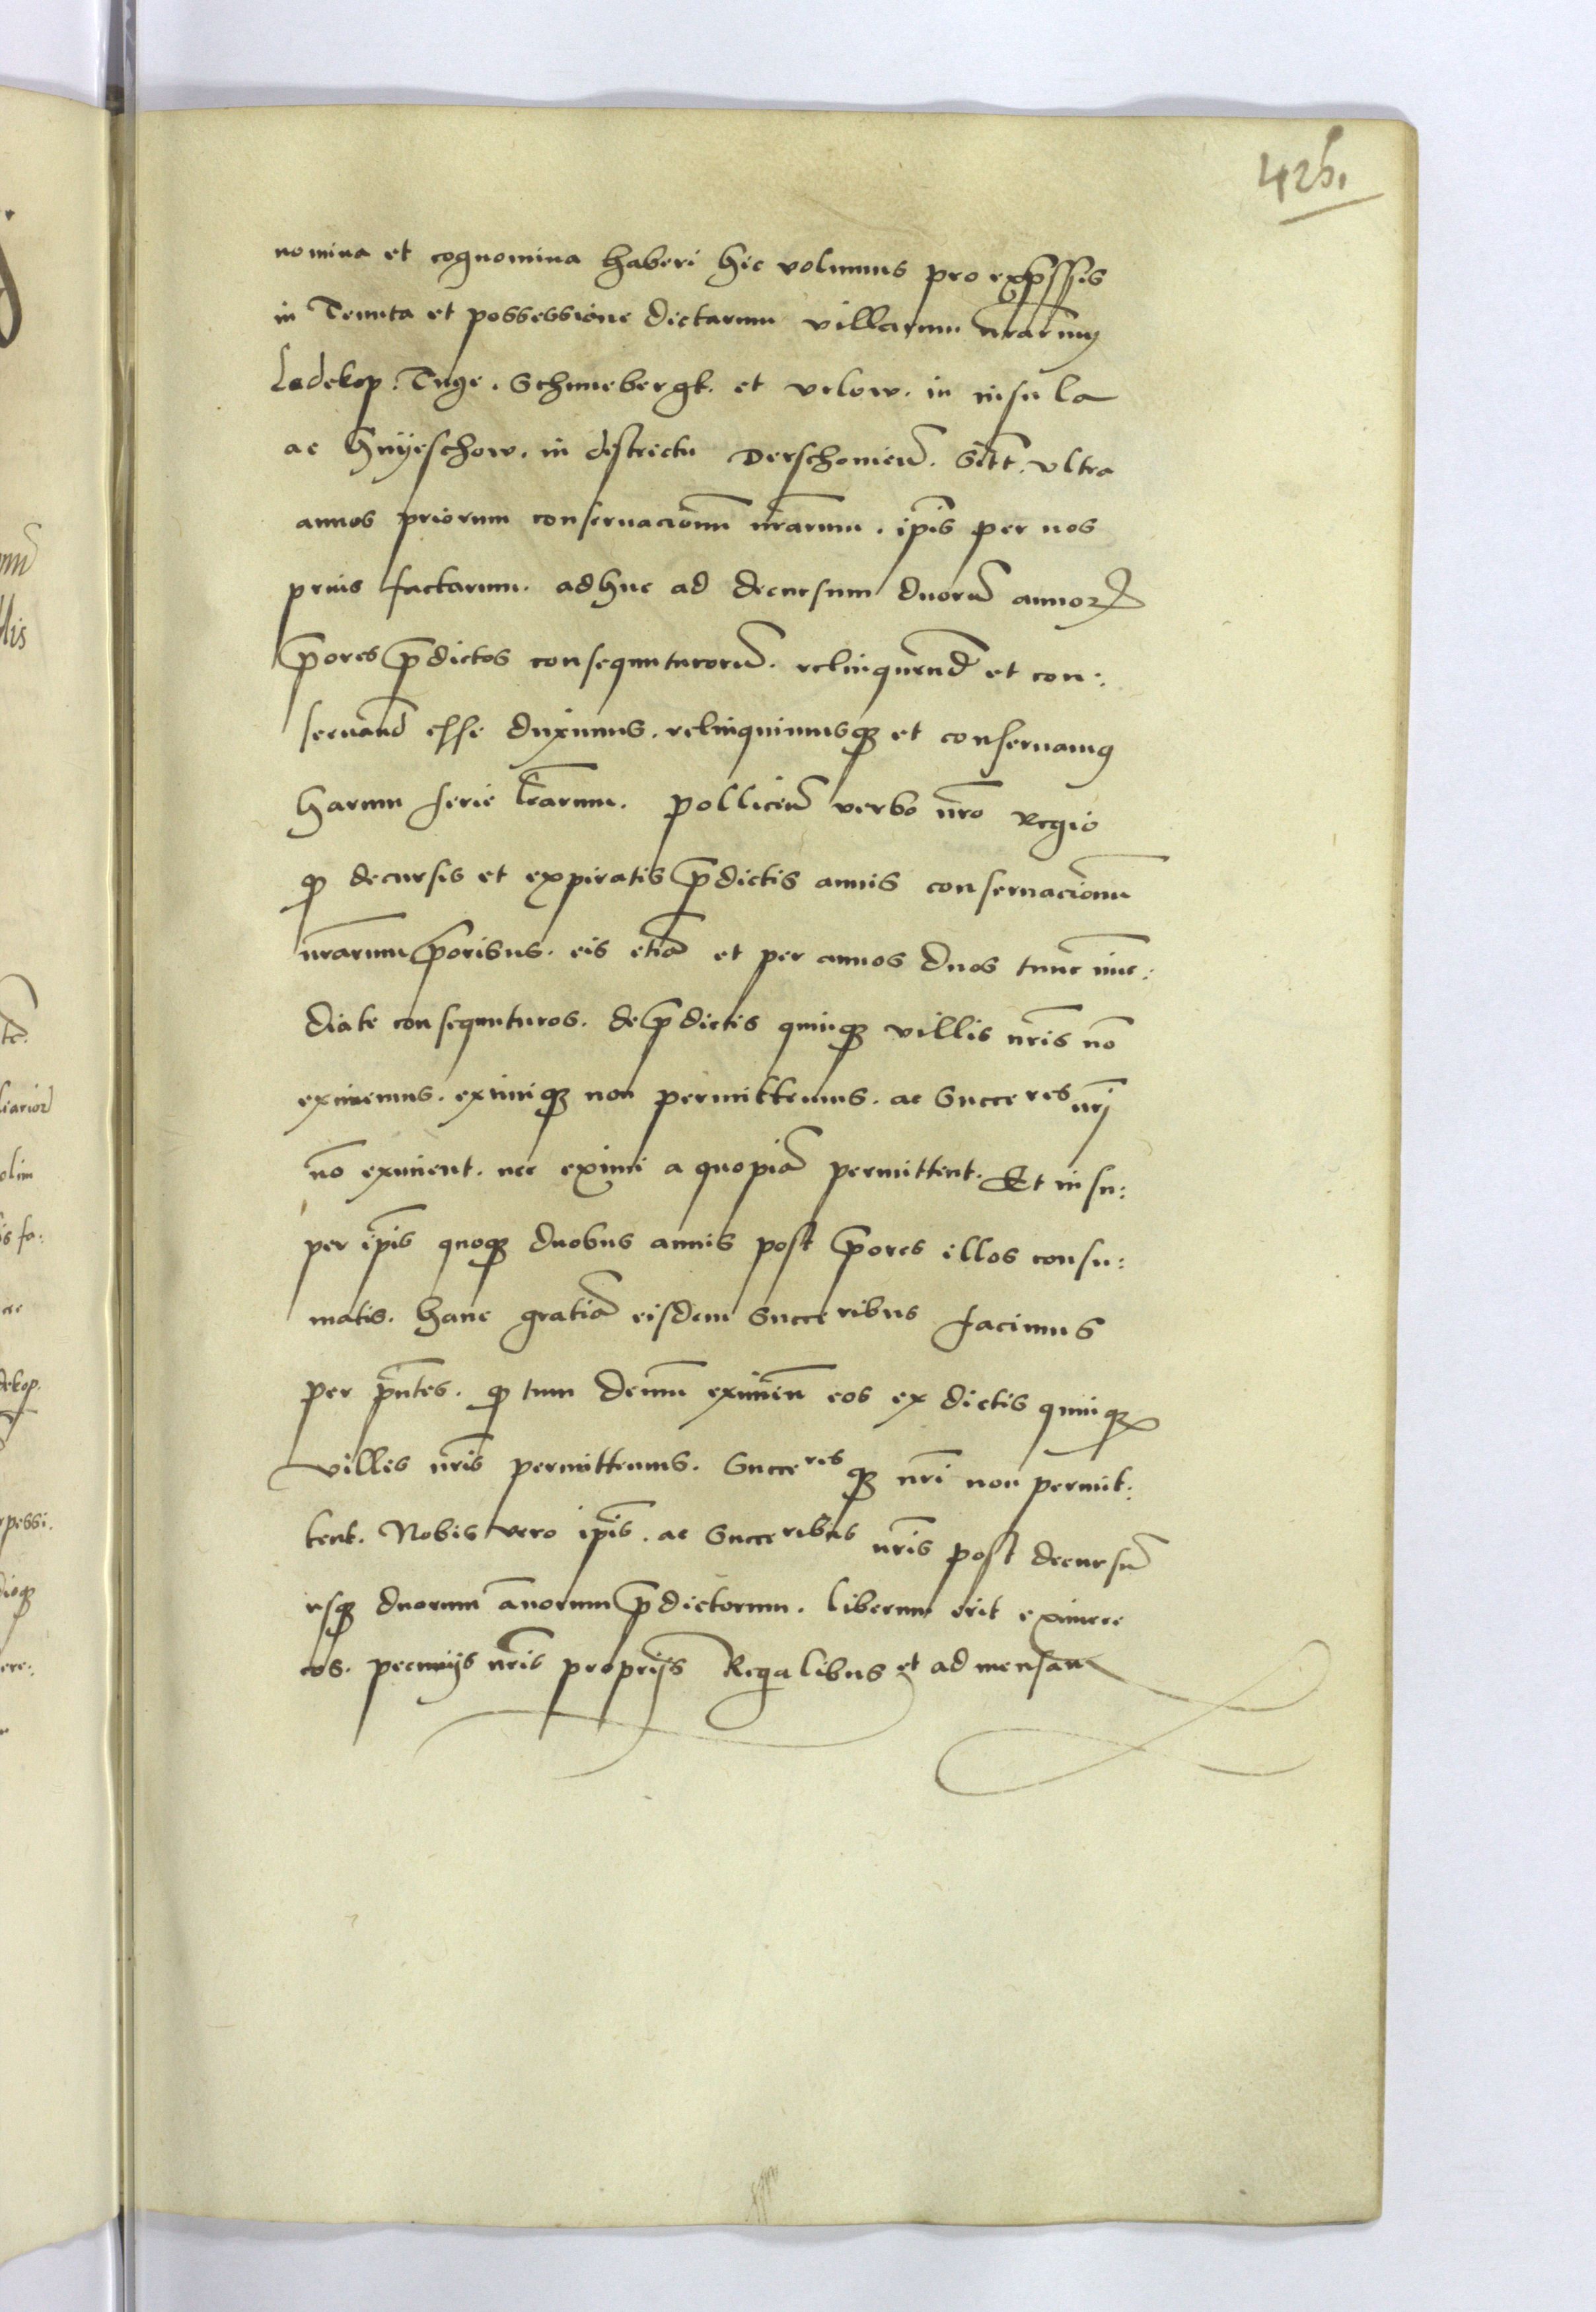 425.
nomina et cognomina haberi hic volumus pro exp̄ssis
in Tenuta et possessione dictarum villarum nr̄arum
Ladekop. Tuge. Schunebergk. et Orlow. in insula
ac Gnyeschow. in districtu Derschoniem̄. Sitt̄. vltra
annos priorum conseruacionū nr̄arum. ip̄is per nos
prius factarum. adhuc ad decursum duorū annoꝝ
p̄ores p̄dictos consequuturorū. relinquend̄ et con:
seruand̄ esse duximus. relinquimusqꝫ et conseruamꝰ
harum serie lr̄arum. pollicem̄ verbo nr̄o Regio
ꝙ decursis et expiratis p̄dictis annis conseruacionū
nr̄arum p̄oribus. eis etiā et per annos duos tunc im̄e:
diate consequuturos. de p̄dictis quinqꝫ villis nr̄is nō
eximemus. eximiqꝫ non permittemus. ac Succeres nr̄j
nō eximent. nec eximi a quopiā permittent. Et insu:
per ip̄is quoqꝫ duobus annis post p̄ores illos consu:
matis. hanc gratiā eisdem Succeribus facimus
per p̄ntes. ꝙ tum demū eximēn eos ex dictis quinqꝫ
villes nr̄is permittemus. Succeresqꝫ nr̄i non permit:
tent. Nobis vero ip̄is. ac Succeribus nr̄is post decursū
usqꝫ duorum annorum p̄dictorum. liberum erit eximere
eos. pecunijs nr̄is proprijs Regalibus et ad mensam